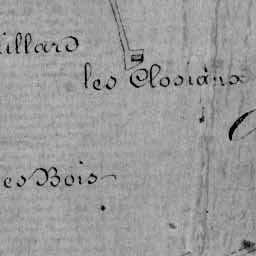 illard
les Closiaux
es Bois